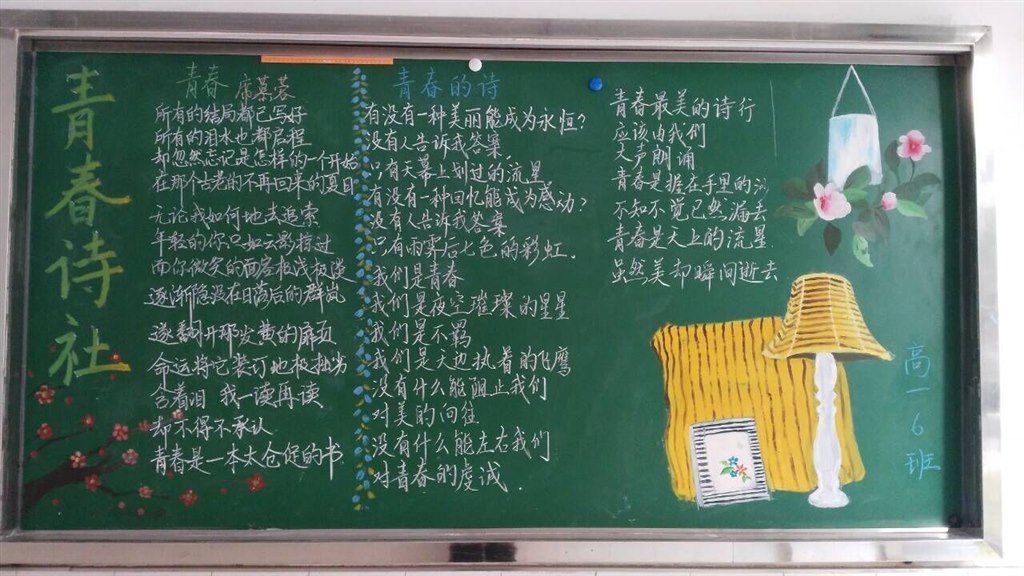 青春诗社
青春 席慕蓉
所有的结局都已写好
所有的泪水也都启程
却忽然忘记是怎样的一个开始
在那个古老的不再回来的夏日
无论我如何地去追索
年轻的你只如云影掠过
而你微笑的面容极浅极淡
逐渐隐没在日落后的群岚
遂翻开那发黄的扉页
命运将它装订地极拙劣
含着泪 我一读再读
却不得不承认
青春是一本太仓促的书
青春的诗
有没有一种美丽能成为永恒?
没有人告诉我答案
只有天幕上划过的流星
有没有一种回忆能成为感动?
没有人告诉我答案
只有雨霁后七色的彩虹.
我们是青春
我们是夜空璀璨的星星
我们是不羁
我们是天边执着的飞鹰
没有什么能阻止我们
对美的向往
没有什么能左右我们
对青春的虔诚.
青春最美的诗行
应该由我们
大声朗诵
青春是握在手里的
不知不觉已然漏去
青春是天上的流星
虽然美却瞬间逝去
高一6班